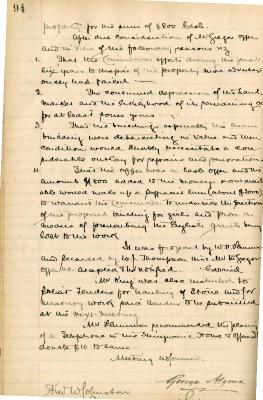 94
property for the sum of $800 cash.
After due consideration of McGregor offer
and in view of the following reasons viz
1. That the Commissioners efforts during the past
six years to dispose of the property more advantage
ously had failed —
2. The continued depression of the land
market and the likelyhood of its continuing so
for at least four years.
3. That the building especially the main
building was deteriorating in value and its
condition would shortly necessitate a con-
siderable outlay for repairs and renovations
4. That this offer was a cash offer and the
amount $800 added to the money now avail
able would make up a sufficient sum (about $2000)
to warrant the Commissioner to undertake the erection
of the proposed building for girls and prove a
means of preventing the English grants being
lost to the work
It was proposed by W. F.
and seconded by W. J. Thompson that McGregor
offer be accepted & he notified. Carried
Mr King was also instructed to
solicit Tenders for hauling of stone and for
masonry work said Tenders to be submitted
at the next meeting
Mr recommended the placing
of a Telephone in the Shingwauk Home & offered to
donate $10 to same.
Meeting adjourned.
George Algoma
Fred W Johnston